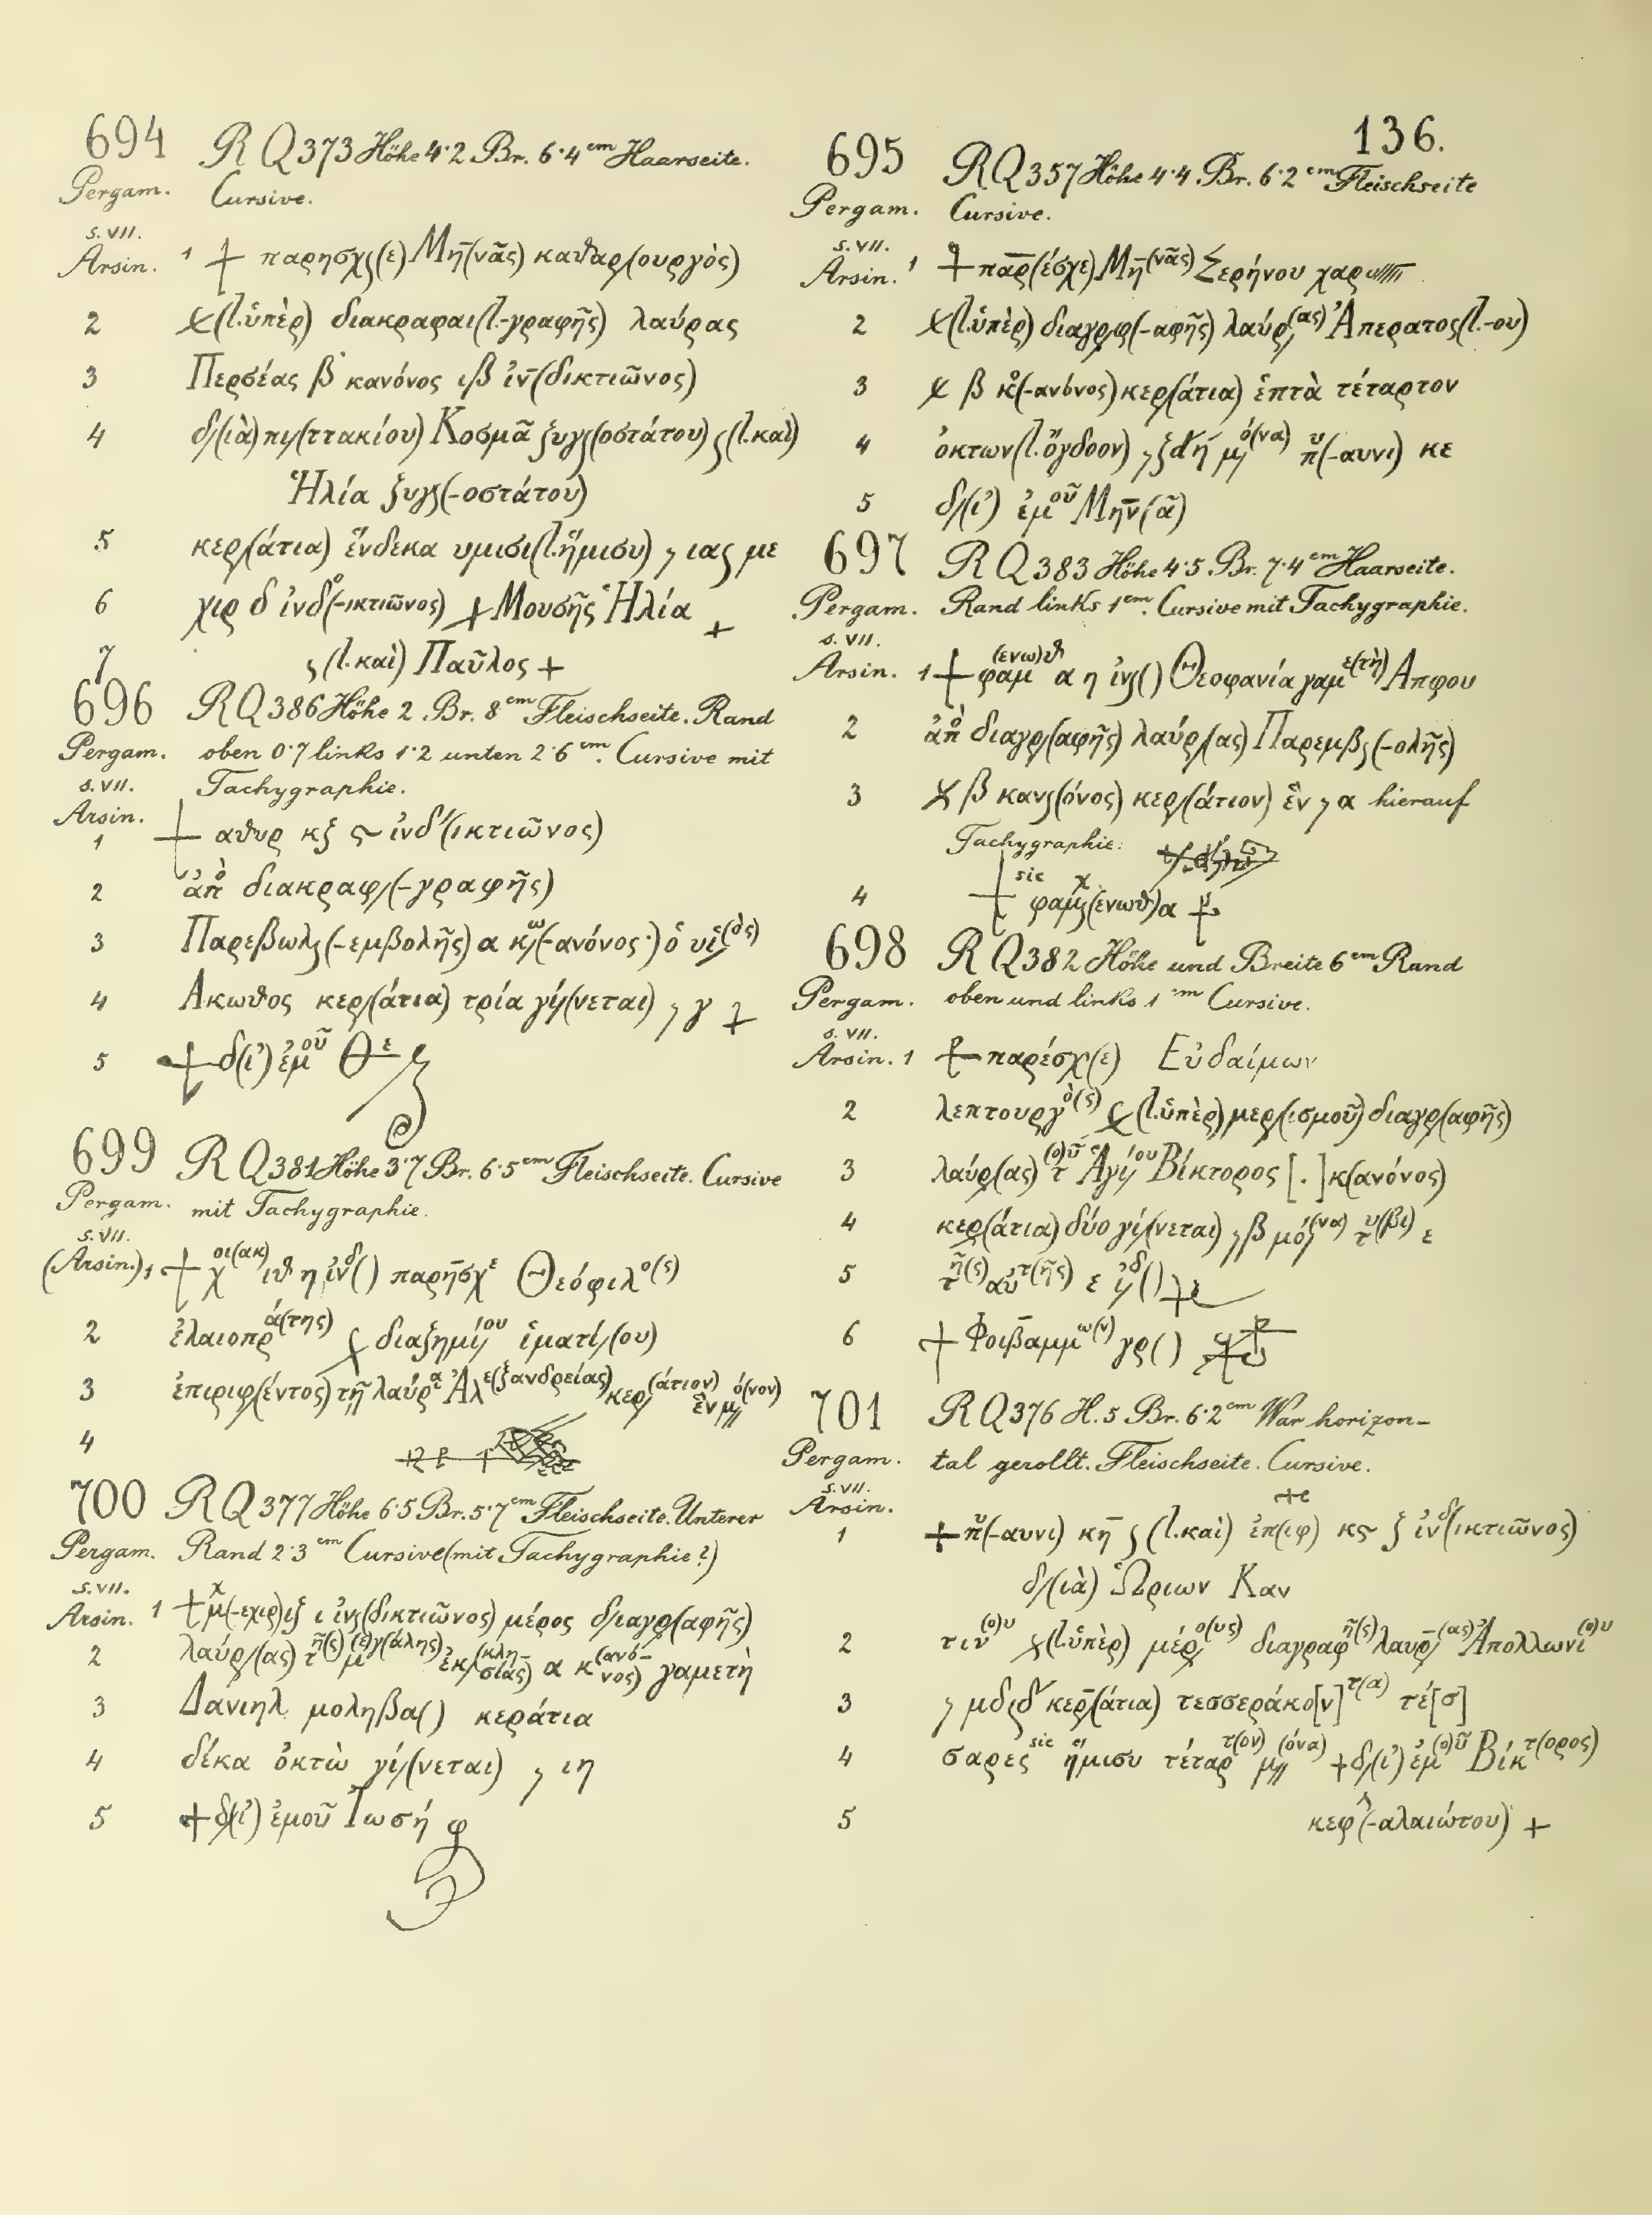 136.
694 R Q 373 Höhe 4·2 Br. 6·4 cm Haarseite.
Pergam. Cursive.
s. VII.
Arsin. 1 + παρησχς(ε) Μη̄(νᾶς) καθαρ/(ουργὸς)
2 (l. ὑπὲρ) διακραφαι(l. -γραφῆς) λαύρας
3 Περσέας β κανόνος ιβ ἰν̄(δικτιῶνος)
4 δ/(ιὰ) πι/(ττακίου) Κοσμᾶ ζυγς(οστάτου) ς(l. καὶ)
Ἠλία ζυγς(-οστάτου)
5 κερ/(άτια) ἕνδεκα υμισι(l. ἥμισυ) 𝟋 ιας με
6 χιρ δ ἰνδ(-ικτιῶνος) + Μουσῆς Ἠλία +
7 ς(l. καὶ) Παῦλος +
696 R Q 386 Höhe 2 Br. 8 cm Fleischseite. Rand
Pergam. oben 0·7 links 1·2 unten 2·6 cm. Cursive mit
s. VII. Tachygraphie.
Arsin.
1 + αθυρ κξ ϛ ἰνδ'(ικτιῶνος)
2 ἀπὸ διακραφ/(-γραφῆς)
3 Παρεβωλς(-εμβολῆς) α κω/(-ανόνος·) ὁ υἱ(ὸς)
4 Ακωθος κερ/(άτια) τρία γί/(νεται) 𝟋 γ +
5 + δ(ι') ἐμοῦ Θε
699 R Q 381 Höhe 3·7 Br. 6·5 cm Fleischseite. Cursive
Pergam. mit Tachygraphie.
s. VII.
(Arsin.) 1 + χοι(ακ) ιθ η ἰνδ() παρῆσχε Θεόφιλο(ς)
2 ἐλαιοπρά(της) διαζημί/ου ἱματί/(ου)
3 ἐπιριφ/(έντος) τῇ λαύρᾳ Ἀλε(ξανδρείας) κερ/(άτιον) ἓν μό(νον)
4
700 R Q 377 Höhe 6·5 Br. 5·7 cm Fleischseite. Unterer
Pergam. Rand 2·3 cm Cursive (mit Tachygraphie?)
s. VII.
Arsin. 1 + μχ(-εχιρ) ιξ ι ἰνς(δικτιῶνος) μέρος δ/ιαγρ/(αφῆς)
2 λαύρ/(ας) τῆ(ς) μ(ε)γ(άλης) ἐκ/(κλησίας) α κ(ανόνος) γαμετὴ
3 Δανιηλ μοληβα() κεράτια
4 δέκα ὀκτὼ γί/(νεται) 𝟋 ιη
5 + δ/(ι') ἐμοῦ Ἰωσήφ
695 R Q 357 Höhe 4·4 Br. 6·2 cm Fleischseite
Pergam. Cursive.
s. VII.
Arsin. 1 + παρ̄(έσχε) Μη̄(νᾶς) Σερήνου χαρω
2 (l. ὑπὲρ) διαγρφ(-αφῆς) λαύρ/(ας) Ἀπερατος(l. -ου)
3 β κ(-ανόνος) κερ/(άτια) ἑπτὰ τέταρτον
4 ὀκτων(l. ὄγδοον) 𝟋 ζδ'ή μ/ό(να) πυ(-αυνι) κε
5 δ/(ι') ἐμοῦ Μην̄(ᾶ)
697 R Q 383 Höhe 4·5 Br. 7·4 cm Haarseite.
Pergam. Rand links 1 cm. Cursive mit Tachygraphie.
s. VII.
Arsin. 1 + φαμ(ενω)θ α η ἰνς() Θεοφανία γαμε(τὴ) Απφου
2 ἀπὸ διαγρ/(αφῆς) λαύρ/(ας) Παρεμβς(-ολῆς)
3 β κανς(όνος) κερ/(άτιον) ἓν 𝟋 α hierauf
Tachygraphie:
sic
4 + φαμς(ενωθ) α
698 R Q 382 Höhe und Breite 6 cm Rand
Pergam. oben und links 1 cm Cursive.
s. VII.
Arsin. 1 + παρέσχ(ε) Εὐδαίμων
2 λεπτουργὸ(ς) (l. ὑπὲρ) μερ/(ισμοῦ) διαγρ/(αφῆς)
3 λαύρ/(ας) τ(ο)ῦ Ἁγί/ου Βίκτορος [.] κ(ανόνος)
4 κερ/(άτια) δύο γί/(νεται) 𝟋 β μό/(να) τυ(βι) ε
5 τῆ(ς) αὐτ(ῆς) ε ἰ/δ() +
6 + Φοιβαμμω(ν) γρ()
701 R Q 376 H. 5 Br. 6·2 cm War horizon-
Pergam. tal gerollt. Fleischseite. Cursive.
s. VII.
Arsin.
1 + πυ(-αυνι) κη̄ ς(l. καὶ) ἐπ(ιφ) κϛ ξ ἰνδ(ικτιῶνος)
δ/(ιὰ) Ὡριων Καν
2 τιν(ο)υ (l. ὑπὲρ) μέρ/ο(υς) διαγραφῆ(ς) λαυρ̄/(ας) Ἀπολλωνί(ο)υ
3 𝟋 μδςδ' κερ̄/(άτια) τεσσεράκο[ν]τ(α) τέ[σ]
4 σαρες sic ἥμισυ τέταρτ(ον) μ(όνα) + δ/(ι') ἐμ(ο)ῦ Βίκτ(ορος)
5 κεφλ(-αλαιώτου) +